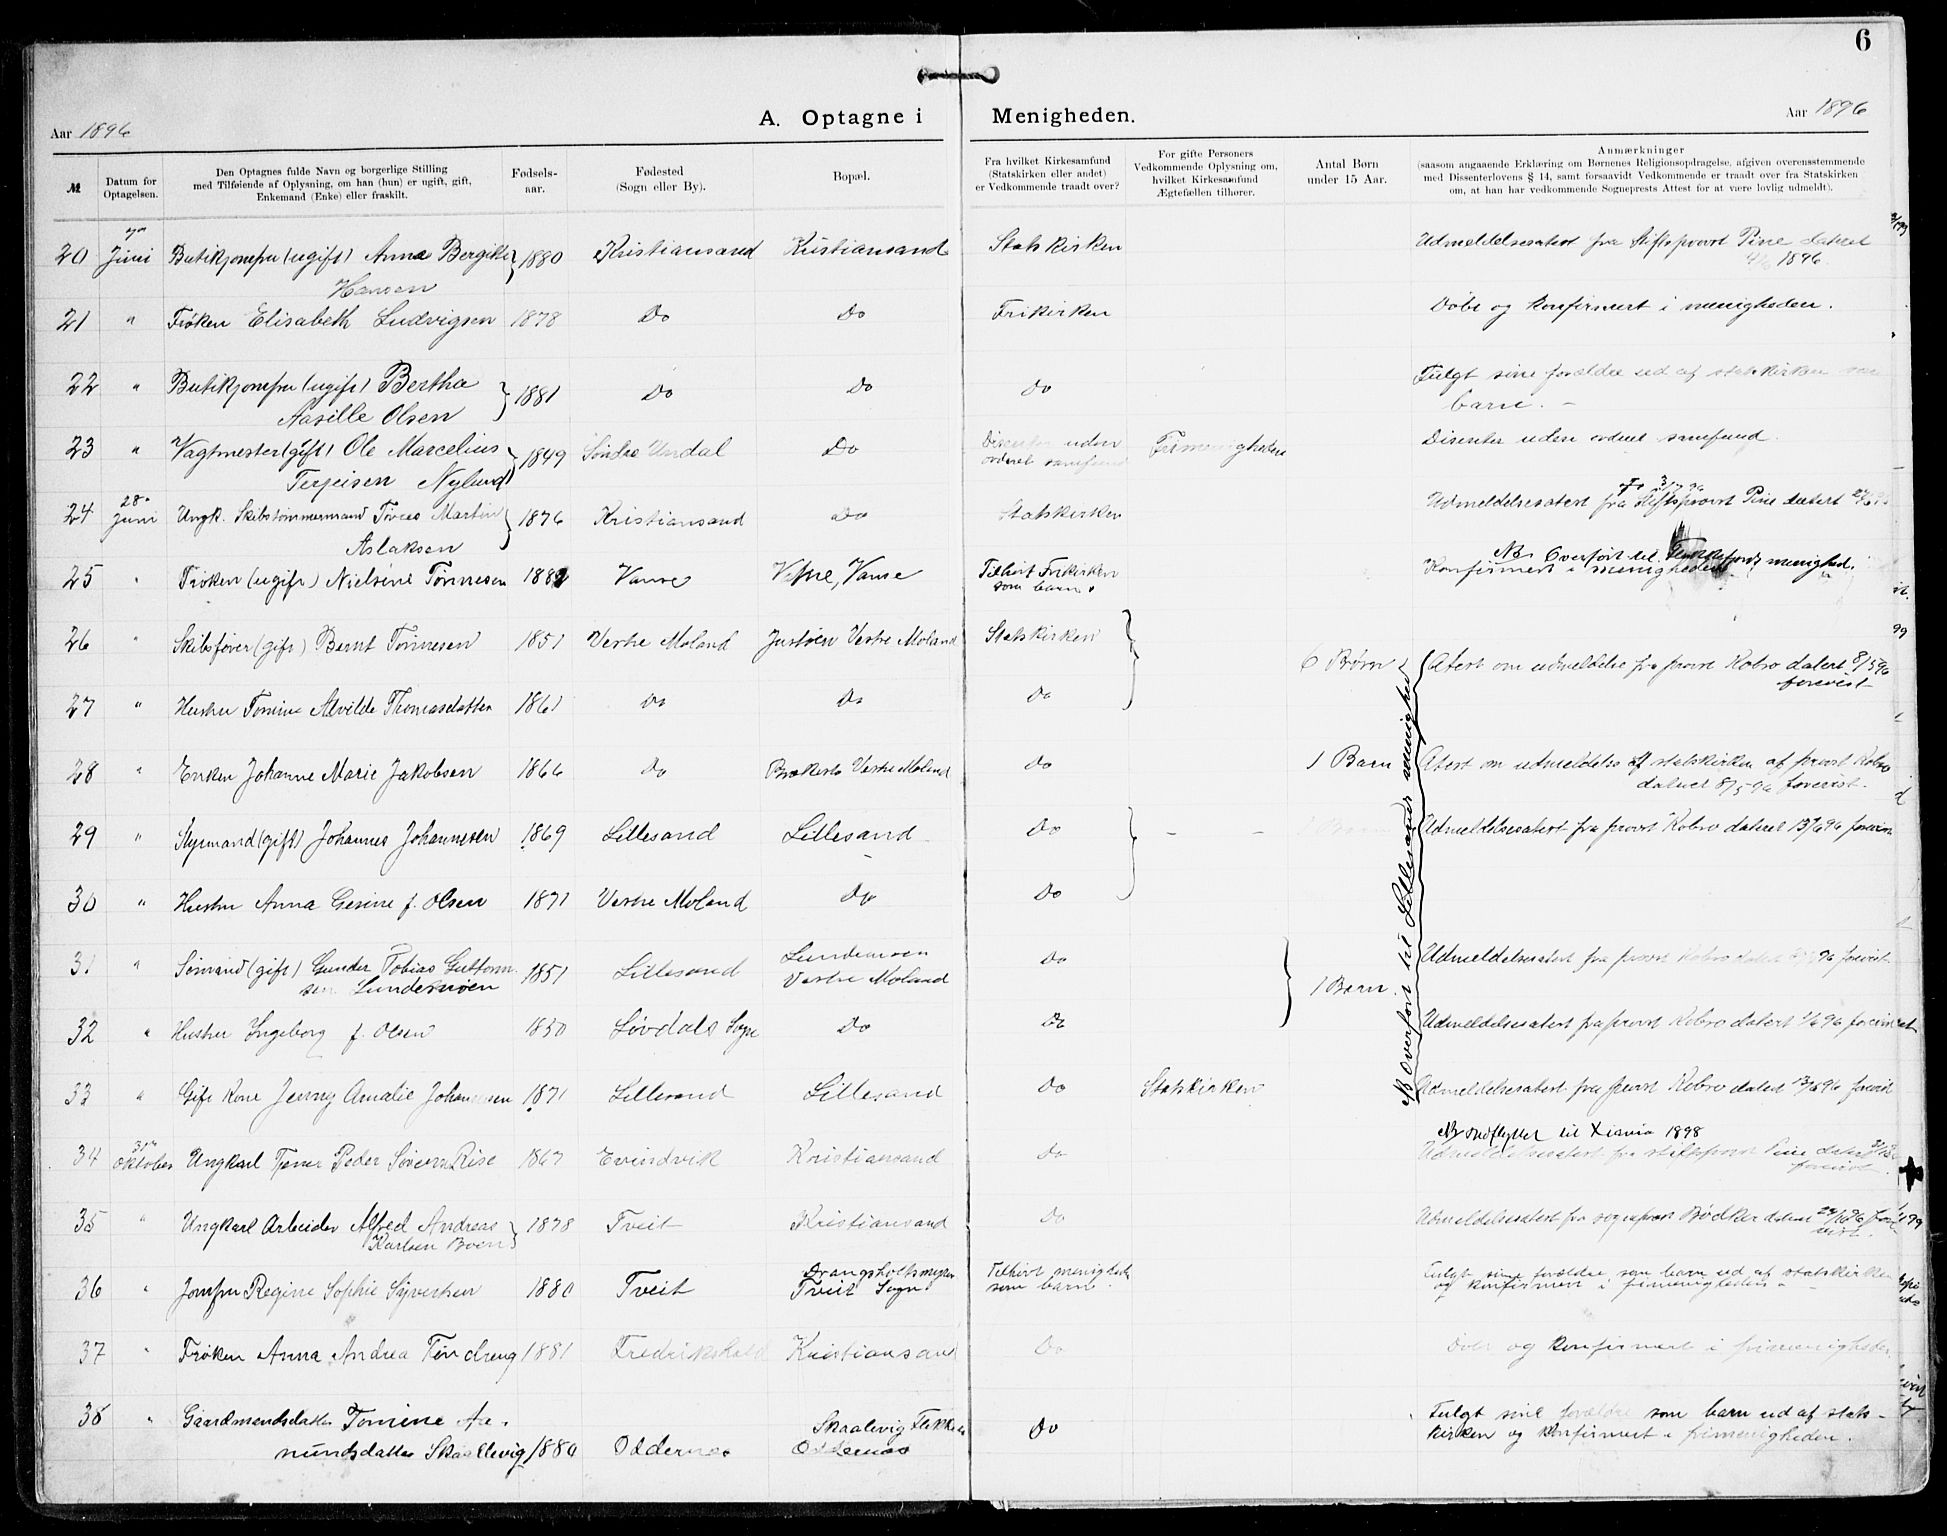 6
Aar 1896
A. Optagne i Menigheden.
Aar 1896
№
Datum for Optagelsen.
Den Optagnes fulde Navn og borgerlige Stilling
med Tilføiende af Oplysning, om han (hun) er ugift, gift,
Enkemand (Enke) eller fraskilt.
Fødsels-
aar.
Fødested
(Sogn eller By).
Bopæl.
Fra hvilket Kirkesamfund
(Statskirken eller andet)
er Vedkommende traadt over?
For gifte Personers
Vedkommende Oplysning om,
hvilket Kirkesamfund
Ægtefællen tilhører.
Antal Børn
under 15 Aar.
Anmærkninger
(saasom angaaende Erklæring om Børnenes Religionsopdragelse, afgiven overensstemmende
med Dissenterlovens § 14, samt forsaavidt Vedkommende er traadt over fra Statskirken
om, at han har vedkommende Sogneprests Attest for at være lovlig udmeldt).
20 Juni Butikjomfru (ugift) Anna Bergitte 1880 Kristiansand Kristiansand Statskirken Udmeldelsesatest fra Stiftsprovst Pine dateret
Hansen 1896.
21 " Frøken Elisabeth Ludvigsen 1878 Do Do Frikirken Döbt og konfirmert i menigheden.
22 " Butikjomfru (ugift) Bertha 1881 Do Do Do Fulgt sine forældre ud af statskirken som
Aasille Olsen barn. -
23 " Vagtmester (gift) Ole Marcelius 1849 Söndre Undal Do Disenter uden ordnet samfund Frimenigheden Disenter uden ordnet samfund.
Terjeisen Nylund
24 28 Juni Ungk. Skibstømmermand Töres Martin 1876 Kristiansand Do Statskirken Udmeldelsesatest fra Stiftsprovst Pine datert
Aslaksen
NB Overfört til Flekkefjords menighed.
25 " Frøken (ugift) Nielsine Tönnesen 1882 Vanse Vanse Tilhørt Frikirken Konfirmert i menigheden
som barn.
26 " Skibsfører (gift) Bernt Tönnesen 1851 Vestre Moland Justøen Vestre Moland Statskirken 6 Børn Atest om udmeldelse fra provst Kobro datert 8/5 96
forevist
27 " Hustru Tomine Alvilde Thomasdatter 1861 Do Do Do
28 " Enken Johanne Marie Jakobsen 1866 Do Brekkestø Vestre Moland Do 1 Barn Atest om udmeldelse af statskirken af provst Kobro
dateret 8/5 96 forevist.
29 " Styrmand (gift) Johannes Johannesen 1869 Lillesand Lillesand Do - - Udmeldelsesatest fra provst Kobro dateret 13/6 96 forevist
30 " Hustru Anna Gesine f. Olsen 1871 Vestre Moland Do Do
31 " Sömand (gift) Gunder Tobias Guttorm- 1851 Lillesand Lundemoen Do 1 Barn. Udmeldelsesatest fra provst Kobro datert 96 forevist
sen Lundemoen Vestre Moland
32 " Hustru Ingeborg f. Olsen 1850 Lövdals Sogn Do Do Udmeldelsesatest fra provst Kobro datert 96 forevist
33 " Gift Kone Jenny Amalie Johannesen 1871 Lillesand Lillesand Do Statskirken Udmeldelsesatest fra provst Kobro datert 13/6 96 forevist
NB Overfört til Lillesands menighed
NB Indflyttet til Xiania 1898
34 Oktober Ungkarl Tjener Peder Sövern Rise 1867 Evindvik Kristiansand Do Udmeldelsesatest fra stiftsprovst Pine datert
forevist
35 " Ungkarl Arbeider Alfred Andreas 1878 Tveit Kristiansand Do Udmeldelsesatest fra sogneprest Bödker datert 96 fore-
Karlsen Boen vist.
36 " Jomfru Regine Sophie Syvertsen 1880 Tveit Drangsholtsmyren Tilhørt menigheden Fulgt sine forældre som barn ud af statskirken
Tveit Sogn som barn og konfirmert i frimenigheden -
37 " Frøken Anna Andrea 1881 Fredrikshald Kristiansand Do Döbt og konfirmert i frimenigheden.
38 " Gaardmandsdatter Tomine Aa- Skaalevig Flekkerö Do Fulgt sine forældre som barn ud af stats-
nundsdatter Skaallevig 1880 Oddernes Oddernes kirken og konfirmert i frimenigheden.